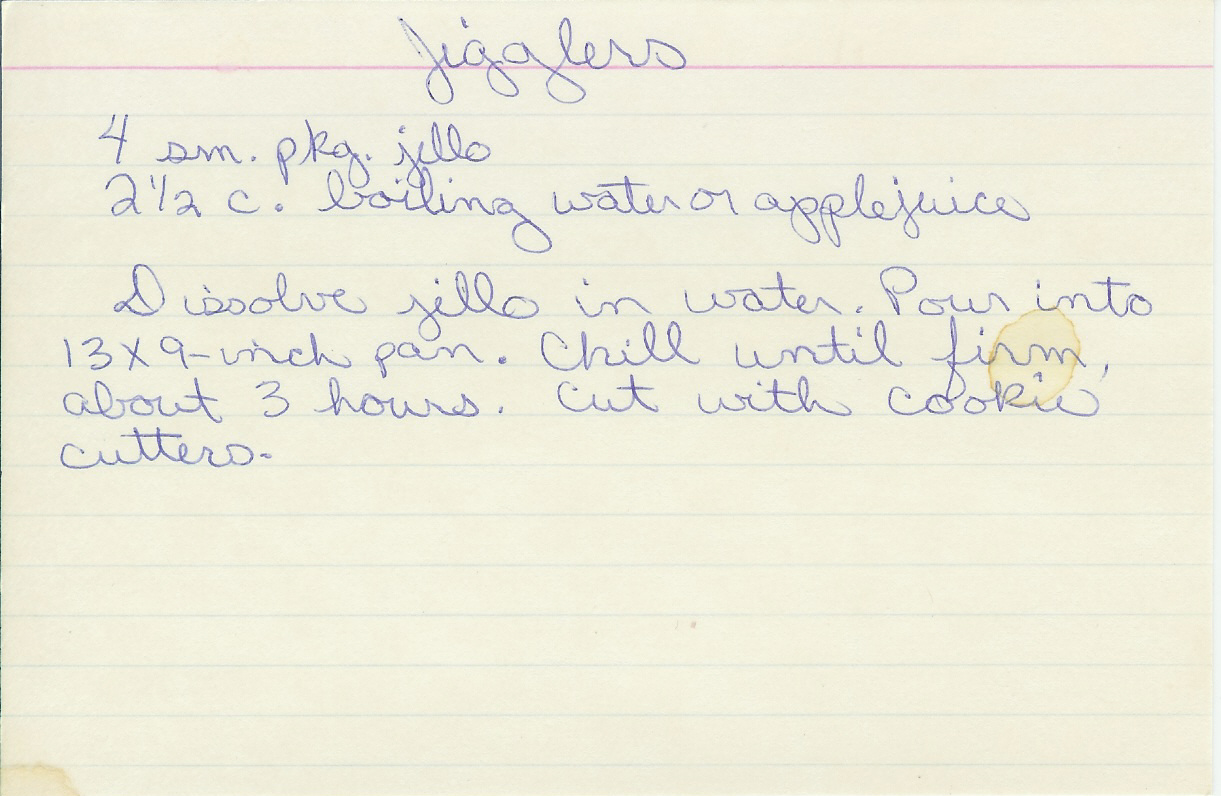 Jigglers
4 sm. pkg. jello
2 1/2 c. boiling water or applejuice
Dissolve jello in water. Pour into
13X9-inch pan. Chill until firm,
about 3 hours. Cut with cookie
cutters.